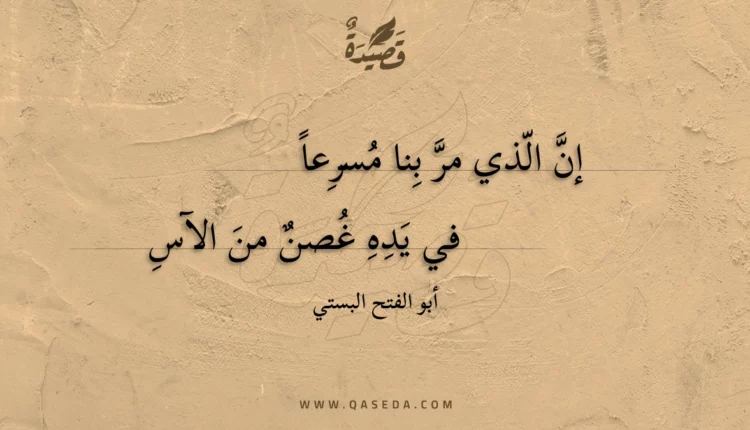 قَصِيْدَةٌ
إنَّ الّذي مرَّ بِنا مُسرِعاً
في يَدِهِ غُصنٌ منَ الآسِ
أبو الفتح البستي
WWW.QASEDA.COM